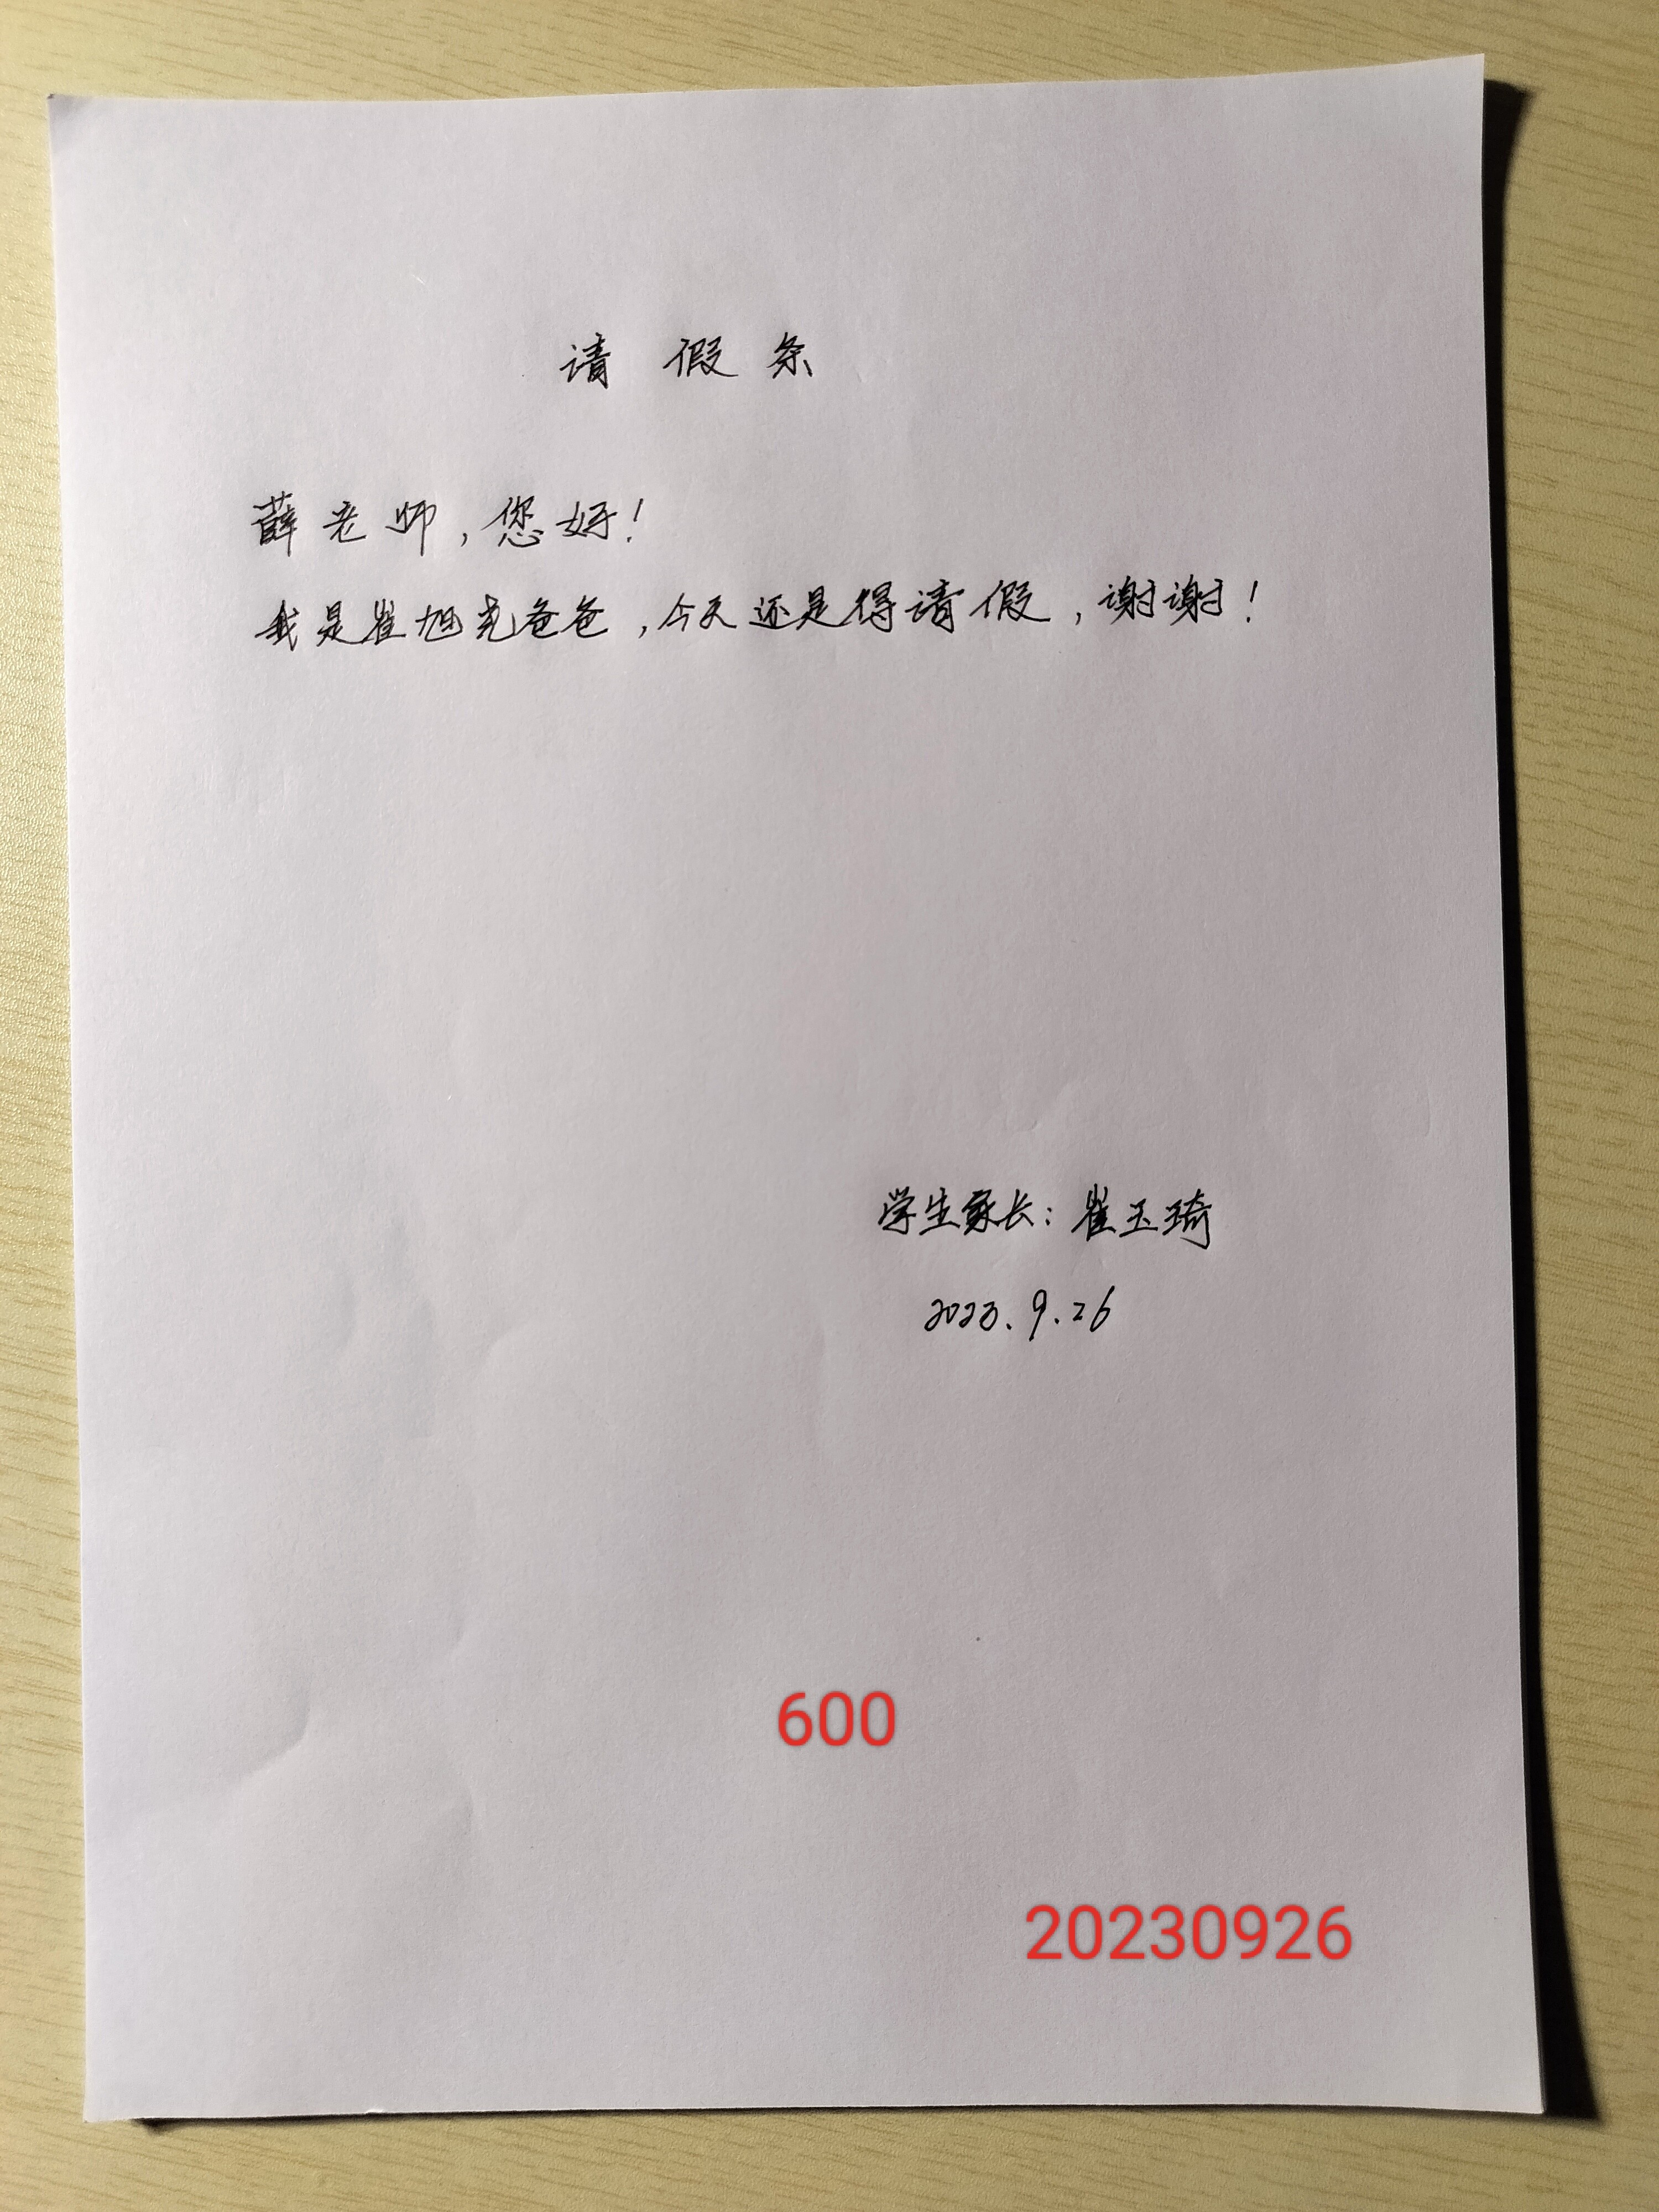 请假条
薛老师,您好!
我是崔旭尧爸爸,今天还是得请假,谢谢!
学生家长:崔玉琦
2023.9.26
600
20230926